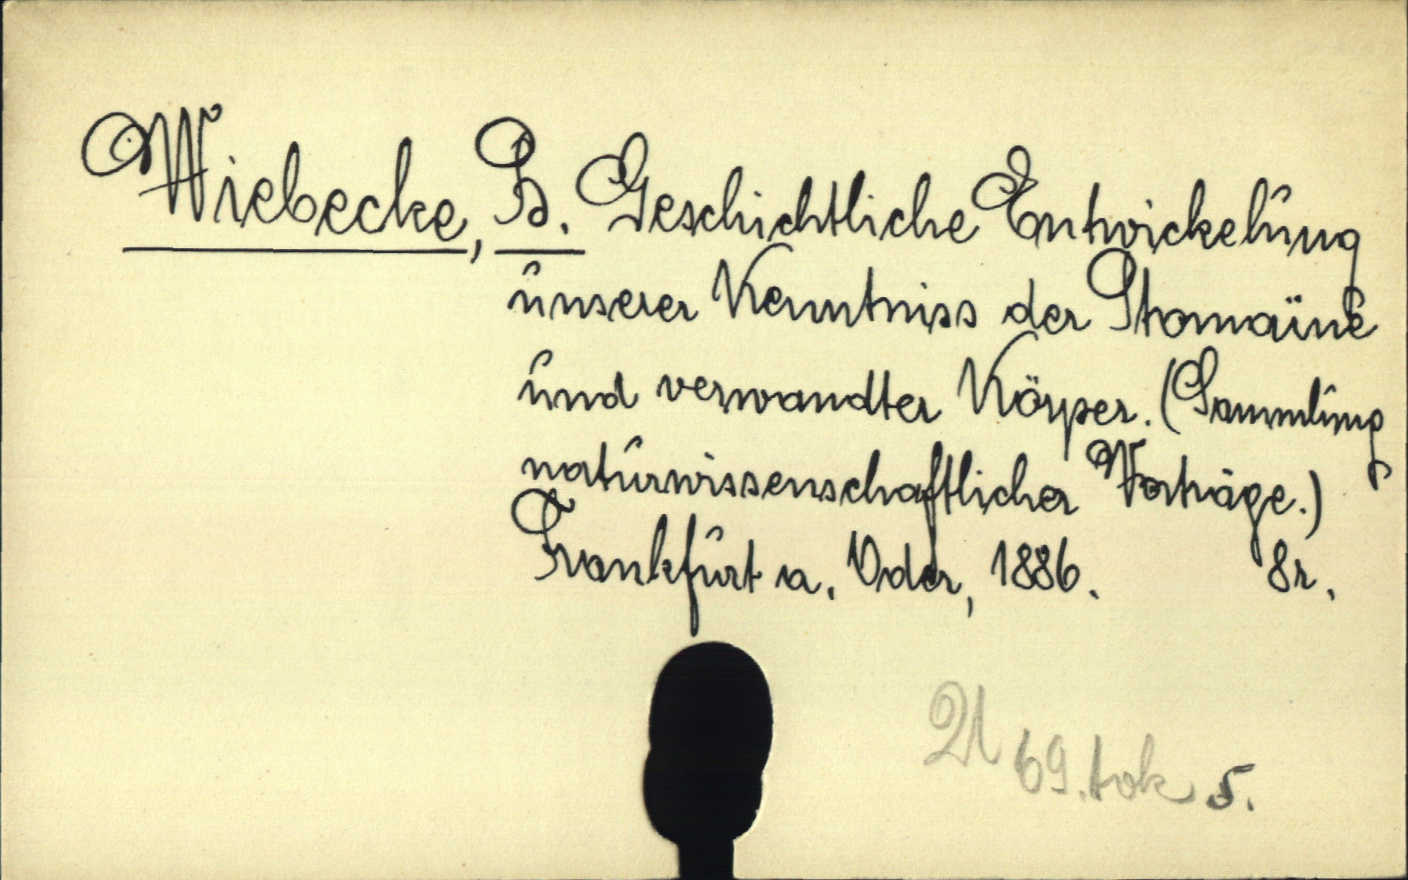 Wiebecke, B. Geschichtliche Entwickelung
unserer Kenntniss der Ptomaïne
und verwandter Körper. (Sammlung
naturwissenschaftlicher Vorträge.)
Frankfurt a. Oder, 1886. 8r.
69. tok 5.